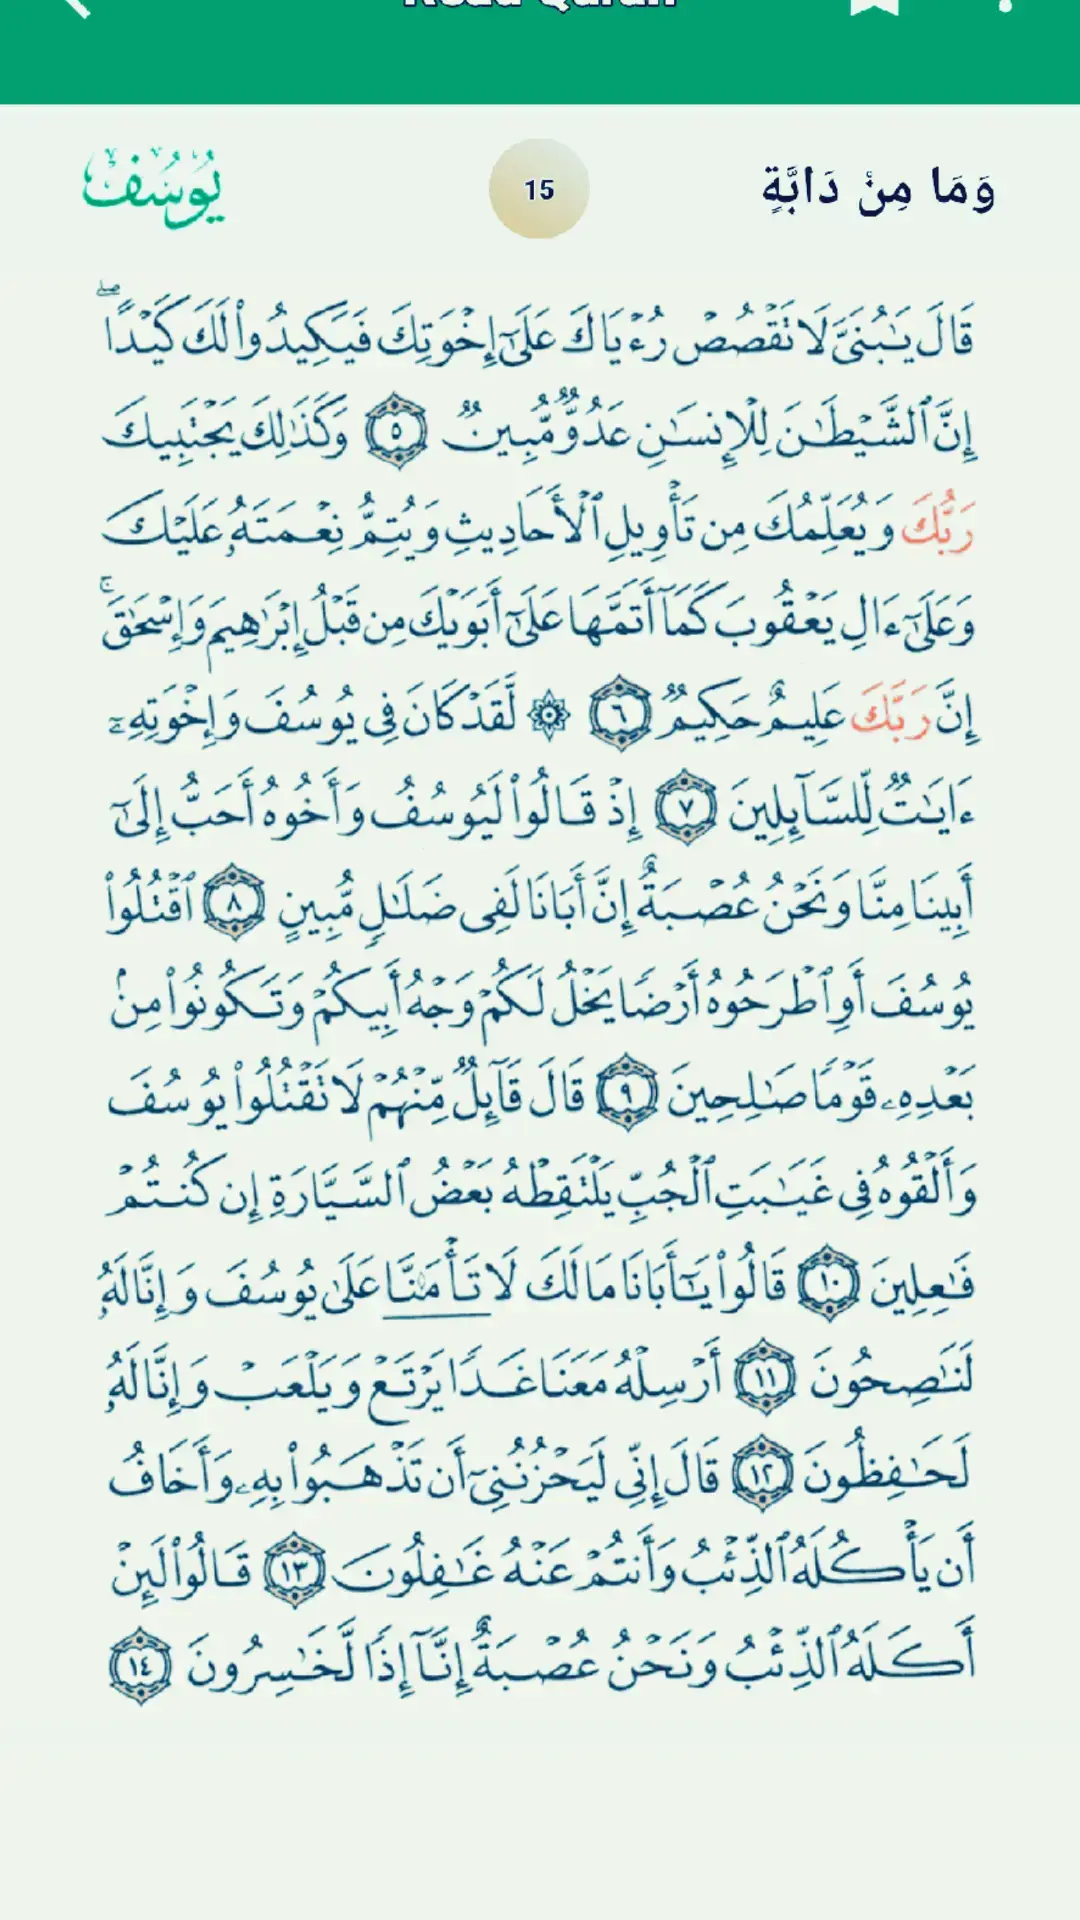 Read Quran
وَمَا مِنْ دَابَّةٍ
15
يُوسُفَ
قَالَ يَـٰبُنَىَّ لَا تَقْصُصْ رُءْيَاكَ عَلَىٰٓ إِخْوَتِكَ فَيَكِيدُوا۟ لَكَ كَيْدًا ۖ
إِنَّ ٱلشَّيْطَـٰنَ لِلْإِنسَـٰنِ عَدُوٌّ مُّبِينٌ ٥ وَكَذَٰلِكَ يَجْتَبِيكَ
رَبُّكَ وَيُعَلِّمُكَ مِن تَأْوِيلِ ٱلْأَحَادِيثِ وَيُتِمُّ نِعْمَتَهُۥ عَلَيْكَ
وَعَلَىٰٓ ءَالِ يَعْقُوبَ كَمَآ أَتَمَّهَا عَلَىٰٓ أَبَوَيْكَ مِن قَبْلُ إِبْرَٰهِيمَ وَإِسْحَـٰقَ ۚ
إِنَّ رَبَّكَ عَلِيمٌ حَكِيمٌ ٦ ۞ لَّقَدْ كَانَ فِى يُوسُفَ وَإِخْوَتِهِۦٓ
ءَايَـٰتٌ لِّلسَّآئِلِينَ ٧ إِذْ قَالُوا۟ لَيُوسُفُ وَأَخُوهُ أَحَبُّ إِلَىٰٓ
أَبِينَا مِنَّا وَنَحْنُ عُصْبَةٌ إِنَّ أَبَانَا لَفِى ضَلَـٰلٍ مُّبِينٍ ٨ ٱقْتُلُوا۟
يُوسُفَ أَوِ ٱطْرَحُوهُ أَرْضًا يَخْلُ لَكُمْ وَجْهُ أَبِيكُمْ وَتَكُونُوا۟ مِنۢ
بَعْدِهِۦ قَوْمًا صَـٰلِحِينَ ٩ قَالَ قَآئِلٌ مِّنْهُمْ لَا تَقْتُلُوا۟ يُوسُفَ
وَأَلْقُوهُ فِى غَيَـٰبَتِ ٱلْجُبِّ يَلْتَقِطْهُ بَعْضُ ٱلسَّيَّارَةِ إِن كُنتُمْ
فَـٰعِلِينَ ١٠ قَالُوا۟ يَـٰٓأَبَانَا مَا لَكَ لَا تَأْمَ۫نَّا عَلَىٰ يُوسُفَ وَإِنَّا لَهُۥ
لَنَـٰصِحُونَ ١١ أَرْسِلْهُ مَعَنَا غَدًا يَرْتَعْ وَيَلْعَبْ وَإِنَّا لَهُۥ
لَحَـٰفِظُونَ ١٢ قَالَ إِنِّى لَيَحْزُنُنِىٓ أَن تَذْهَبُوا۟ بِهِۦ وَأَخَافُ
أَن يَأْكُلَهُ ٱلذِّئْبُ وَأَنتُمْ عَنْهُ غَـٰفِلُونَ ١٣ قَالُوا۟ لَئِنْ
أَكَلَهُ ٱلذِّئْبُ وَنَحْنُ عُصْبَةٌ إِنَّآ إِذًا لَّخَـٰسِرُونَ ١٤